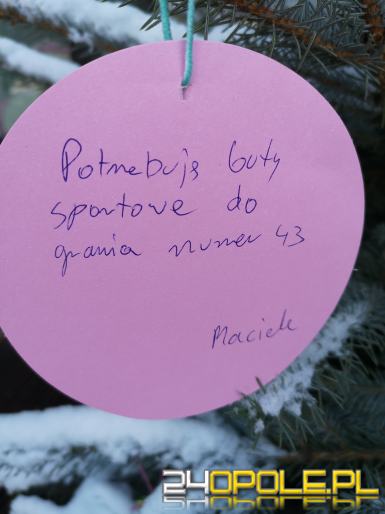 Potrzebuję buty
sportowe do
grania numer 43
Maciek
24OPOLE.PL